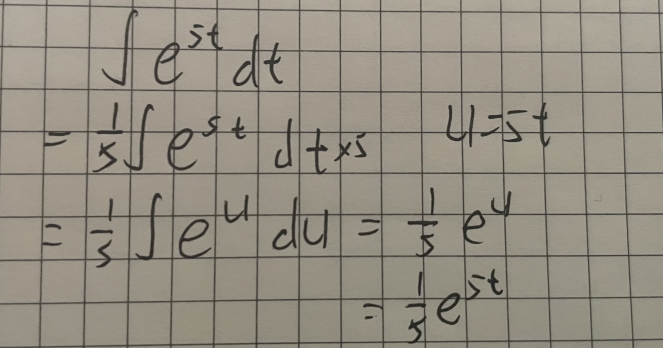 ∫ e^{5t} dt
= 1/5 ∫ e^{5t} dt×5 u=5t
= 1/5 ∫ e^u du = 1/5 e^u
= 1/5 e^{5t}